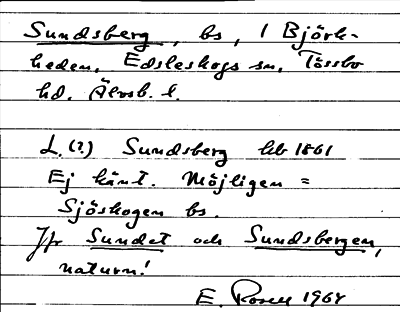 Sundsberg, bs, 1 Björk-
heden, Edsleskogs sn, Tössbo
hd, Älvsb. l.
L. (?) Sundsberg hb 1861
Ej känt. Möjligen =
Sjöskogen bs.
Jfr Sundet och Sundsbergen,
naturn!
E. Rosell 1964